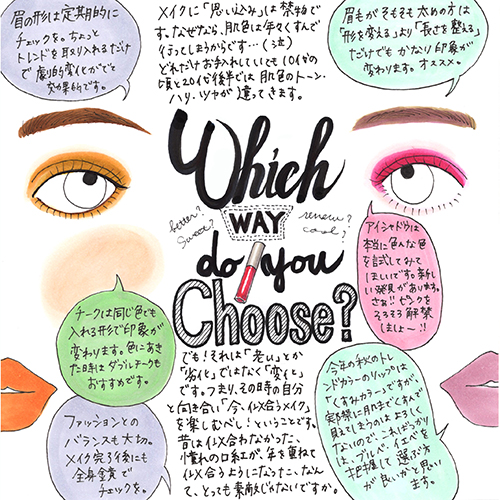 眉の形は定期的に
チェックを。ちょっと
トレンドを取り入れるだけ
で劇的変化がでて
効果的です。
メイクに「思い込み」は禁物で
す。なぜなら、肌色は年々くすんで
行ってしまうからです…(泣)
どれだけお手入れしていても10代の
頃と20代後半では肌色のトーン・
ハリ・ツヤが違ってきます。
眉毛がそもそも太め の方は
「形を変える」より「長さを整える」
だけでもかなり印象が
変わります。オススメ。
Which
WAY
do you
Choose?
better?
Sweet?
renew?
cool?
アイシャドウは
本当に色んな色
を試してみて
ほしいです。新し
い発見があります。
さぁ!!ピンクを
そろそろ解禁
しましょ〜!!
チークは同じ色でも
入れる形で印象が
変わります。色にあき
た時はダブルチークも
おすすめです。
でも!それは「老い」とか
「劣化」ではなく「変化」
です。つまり、その時の自分
と向き合い「今、似合うメイク」
を楽しむべし!ということです。
昔は似合わなかった、
憧れの口紅が、年を重ねて
似合うようになったこ、なん
て、とっても素敵じゃないですか。
ファッションとの
バランスも大切。
メイク完了後にも
全身鏡で
チェックを。
今年の秋のトレ
ンドカラーのリップは
「くすみカラー」ですが、
実際に肌までくすんで
見えてしまうのはよろしく
ないので、こればっかり
は、ブルベ、イエベを
把握して選ぶ方
が良いかと思い
ます。